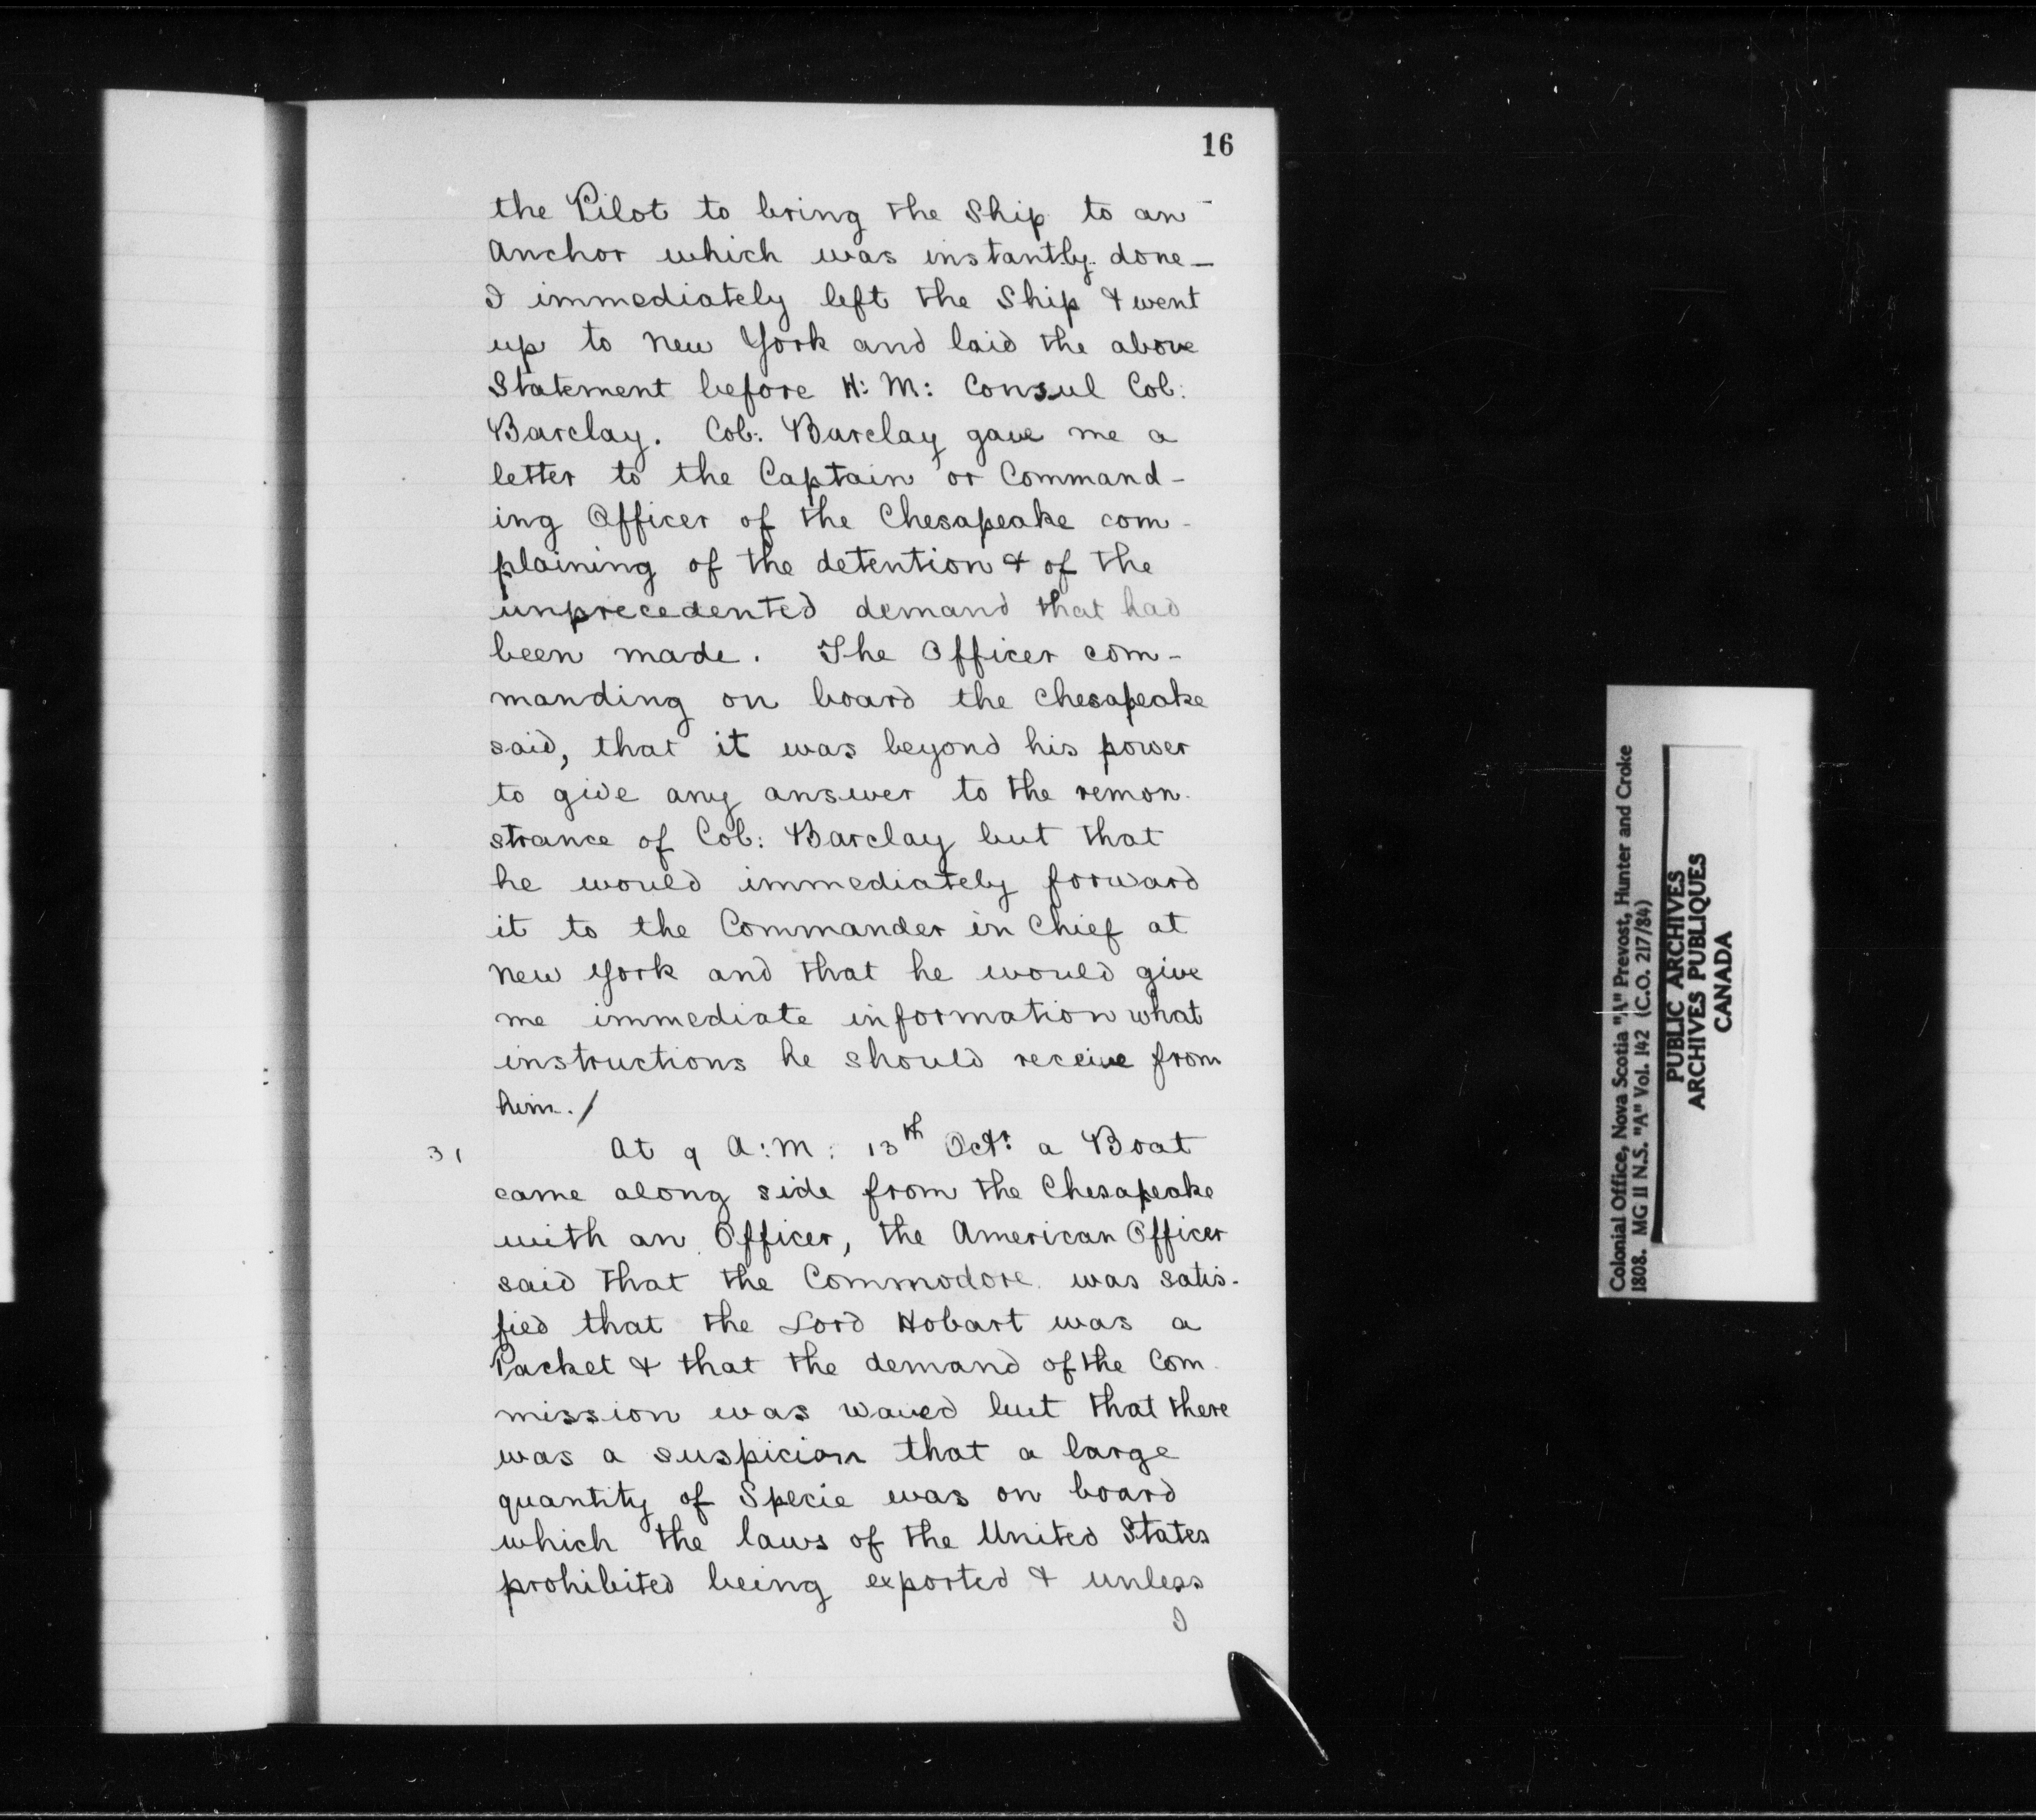 16
the Pilot to bring the Ship to an
Anchor which was instantly done—
I immediately left the Ship & went
up to New York and laid the above
Statement before H: M: Consul Col:
Barclay. Col: Barclay gave me a
letter to the Captain or Command-
ing Officer of the Chesapeake com-
plaining of the detention & of the
unprecedented demand that had
been made. The Officer com-
manding on board the Chesapeake
said, that it was beyond his power
to give any answer to the remon-
strance of Col: Barclay but that
he would immediately forward
it to the Commander in Chief at
New York and that he would give
me immediate information what
instructions he should receive from
him./
31
At 9 A:M: 13th Octr. a Boat
came along side from the Chesapeake
with an Officer, the American Officer
said that the Commodore was satis-
fied that the Lord Hobart was a
Packet & that the demand of the Com-
mission was waved but that there
was a suspicion that a large
quantity of Specie was on board
which the laws of the United States
prohibited being exported & unless
I
Colonial Office, Nova Scotia "A" Prevost, Hunter and Croke
1808. MG II N.S. "A" Vol. 142 (C.O. 217/84)
PUBLIC ARCHIVES
ARCHIVES PUBLIQUES
CANADA